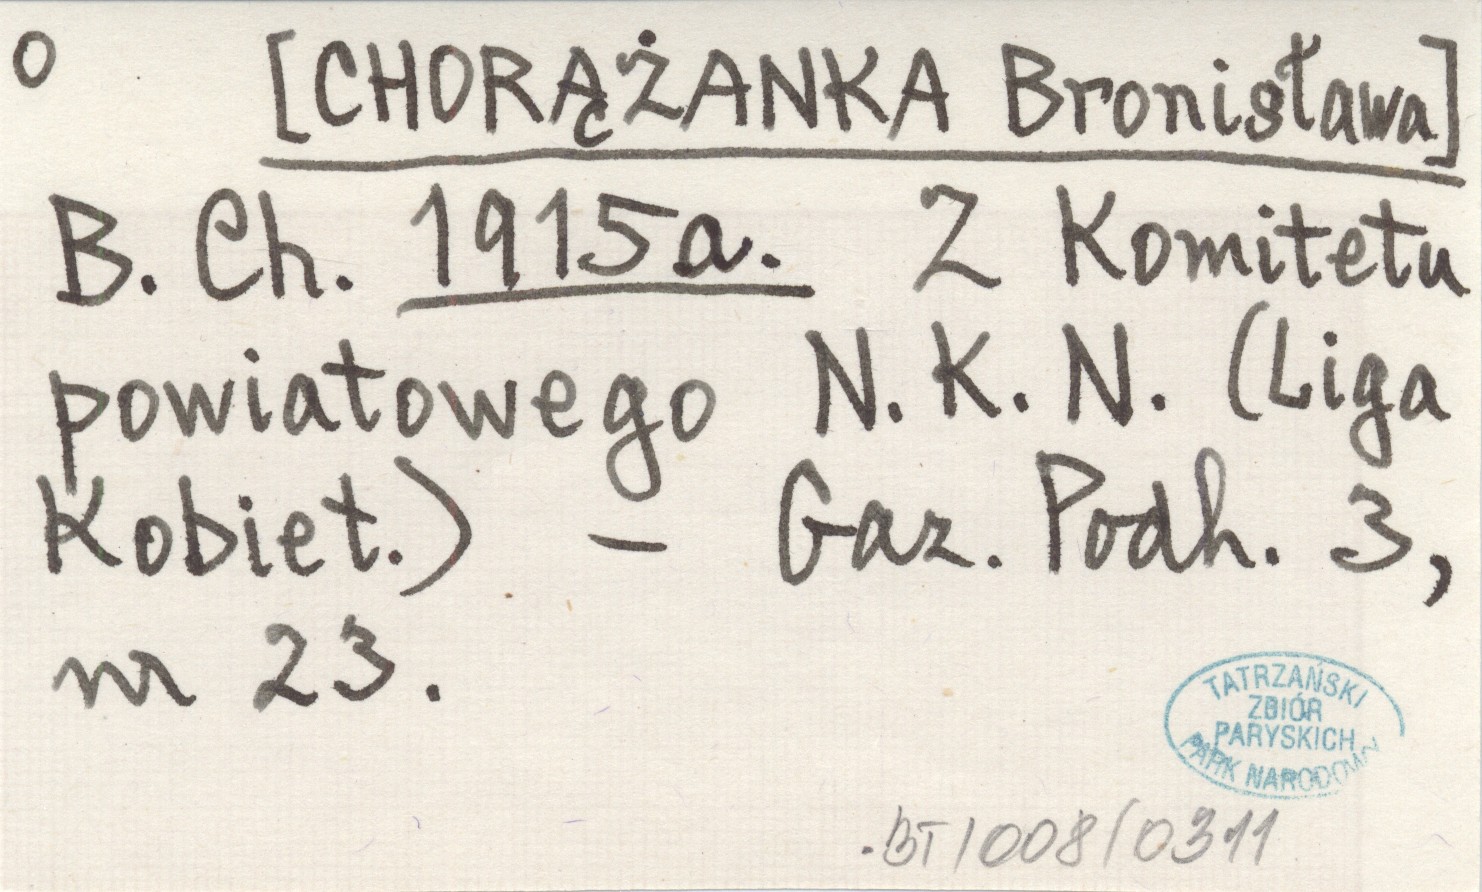 o [CHORĄŻANKA Bronisława]
B. Ch. 1915a. Z Komitetu
powiatowego N. K. N. (Liga
Kobiet.) – Gaz. Podh. 3,
nr 23.
TATRZAŃSKI
ZBIÓR
PARYSKICH
PARK NARODOWY
.BT/008/0311